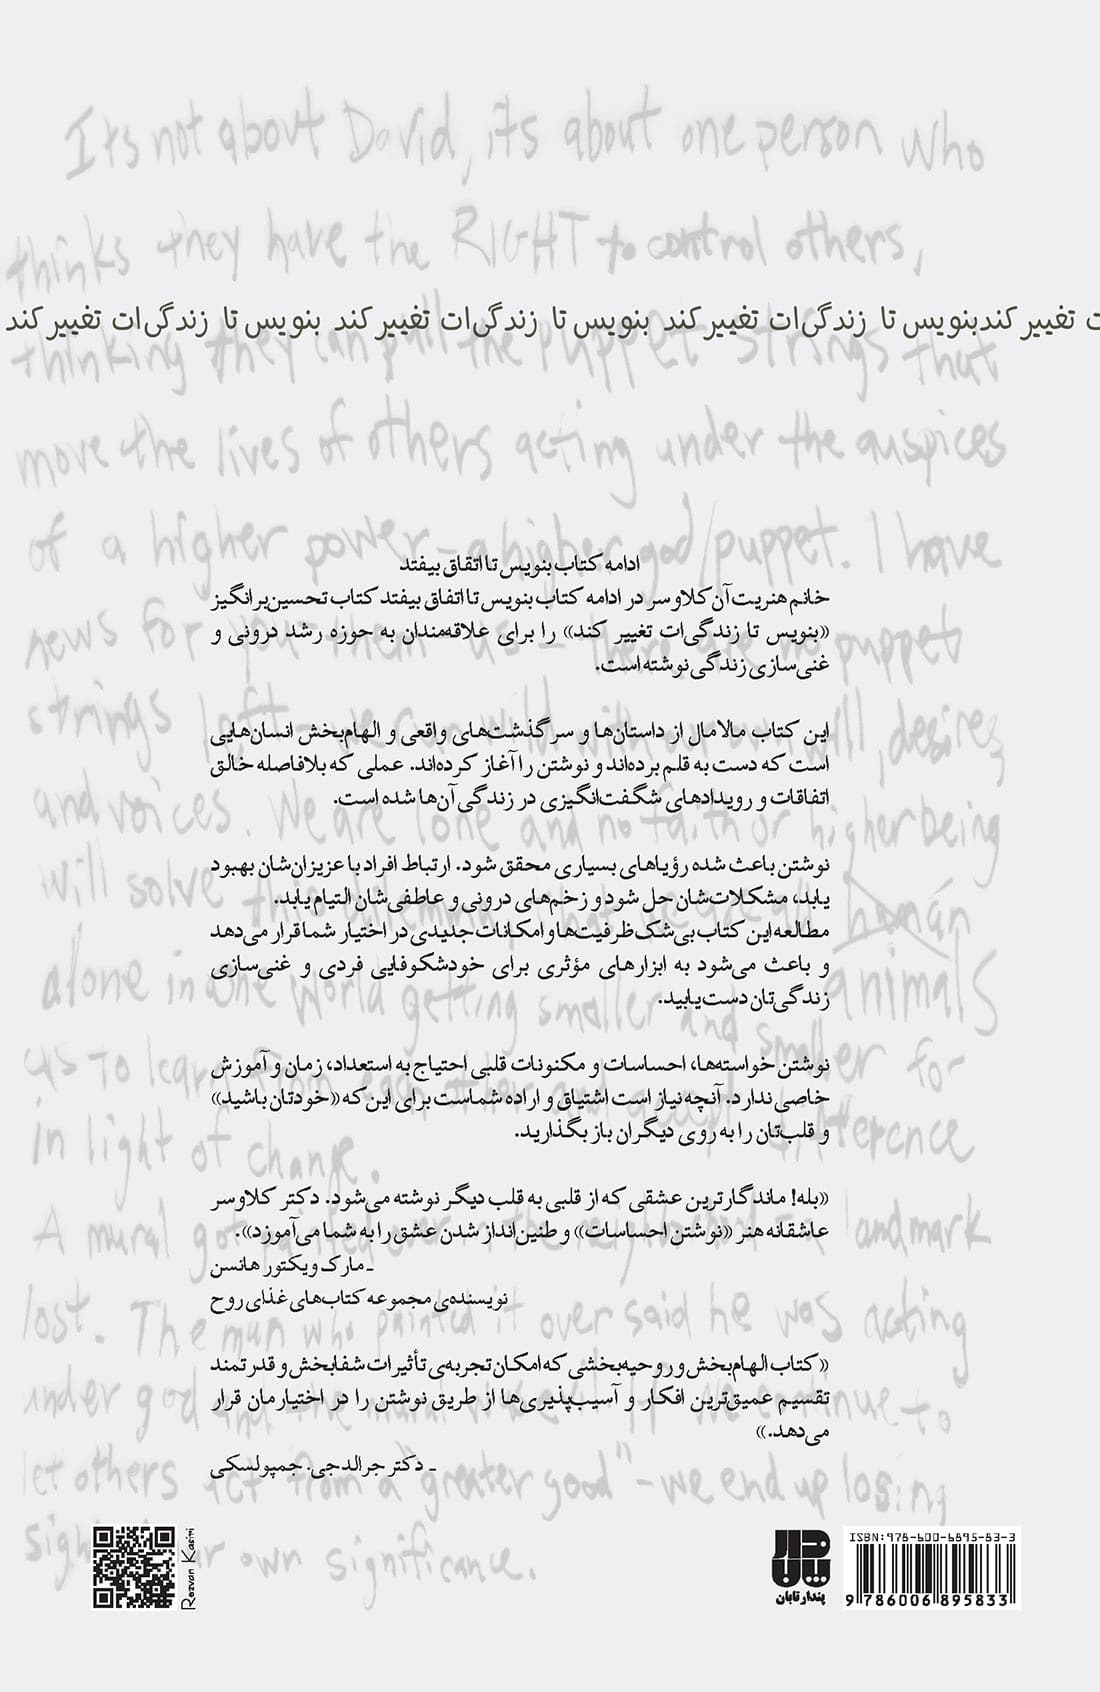 Its not about David, its about one person who
thinks they have the RIGHT to control others,
ت تغییر کندبنویس تا زندگی‌ات تغییر کند بنویس تا زندگی‌ات تغییر کند بنویس تا زندگی‌ات تغییر کند
thinking they can pull the puppet strings that
move the lives of others acting under the auspices
of a higher power - a higher god/puppet. I have
ادامه کتاب بنویس تا اتقاق بیفتد
خانم هنریت آن کلاوسر در ادامه کتاب بنویس تا اتفاق بیفتد کتاب تحسین‌برانگیز
«بنویس تا زندگی‌ات تغییر کند» را برای علاقه‌مندان به حوزه رشد درونی و
غنی‌سازی زندگی نوشته است.
news for you them us puppet
strings will, desires,
این کتاب مالامال از داستان‌ها و سرگذشت‌های واقعی و الهام‌بخش انسان‌هایی
است که دست به قلم برده‌اند و نوشتن را آغاز کرده‌اند. عملی که بلافاصله خالق
اتفاقات و رویدادهای شگفت‌انگیزی در زندگی آن‌ها شده است.
and voices. We are lone and no faith or higher being
will solve human
نوشتن باعث شده رؤیاهای بسیاری محقق شود. ارتباط افراد با عزیزان‌شان بهبود
یابد، مشکلات‌شان حل شود و زخم‌های درونی و عاطفی‌شان التیام یابد.
مطالعه این کتاب بی‌شک ظرفیت‌ها و امکانات جدیدی در اختیار شما قرار می‌دهد
و باعث می‌شود به ابزارهای مؤثری برای خودشکوفایی فردی و غنی‌سازی
زندگی‌تان دست یابید.
animals
alone in one world getting smaller and smaller for
us to learn
نوشتن خواسته‌ها، احساسات و مکنونات قلبی احتیاج به استعداد، زمان و آموزش
خاصی ندارد. آنچه نیاز است اشتیاق و اراده شماست برای این که «خودتان باشید»
و قلب‌تان را به روی دیگران باز بگذارید.
difference
in light of change.
«بله! ماندگارترین عشقی که از قلبی به قلب دیگر نوشته می‌شود. دکتر کلاوسر
عاشقانه هنر «نوشتن احساسات» و طنین‌انداز شدن عشق را به شما می‌آموزد».
ـ مارک ویکتور هانسن
نویسنده‌ی مجموعه کتاب‌های غذای روح
A mural got landmark
lost. The man who painted it over said he was acting
«کتاب الهام‌بخش و روحیه‌بخشی که امکان تجربه‌ی تأثیرات شفابخش و قدرتمند
تقسیم عمیق‌ترین افکار و آسیب‌پذیری‌ها از طریق نوشتن را در اختیارمان قرار
می‌دهد.»
ـ دکتر جرالد جی. جمپولسکی
under god and the mural continue to
let others act from a "greater good" - we end up losing
sight our own significance.
Rezvan Kasiri
پندار تابان
ISBN: 978-600-6895-83-3
9 786006 895833